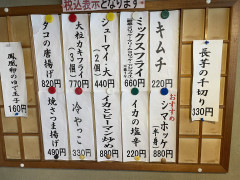 税込表示となります
長芋の千切り
330円
キムチ
220円
おすすめ
シマホッケ
(半身)
880円
ミックスフライ
660円
イカの塩辛
220円
シューマイ(大)
440円
イカとピーマン炒め
880円
大粒カキフライ
(3個)
770円
冷やっこ
330円
タコの唐揚げ
820円
焼さつま揚げ
490円
鳳凰卵のゆで玉子
160円